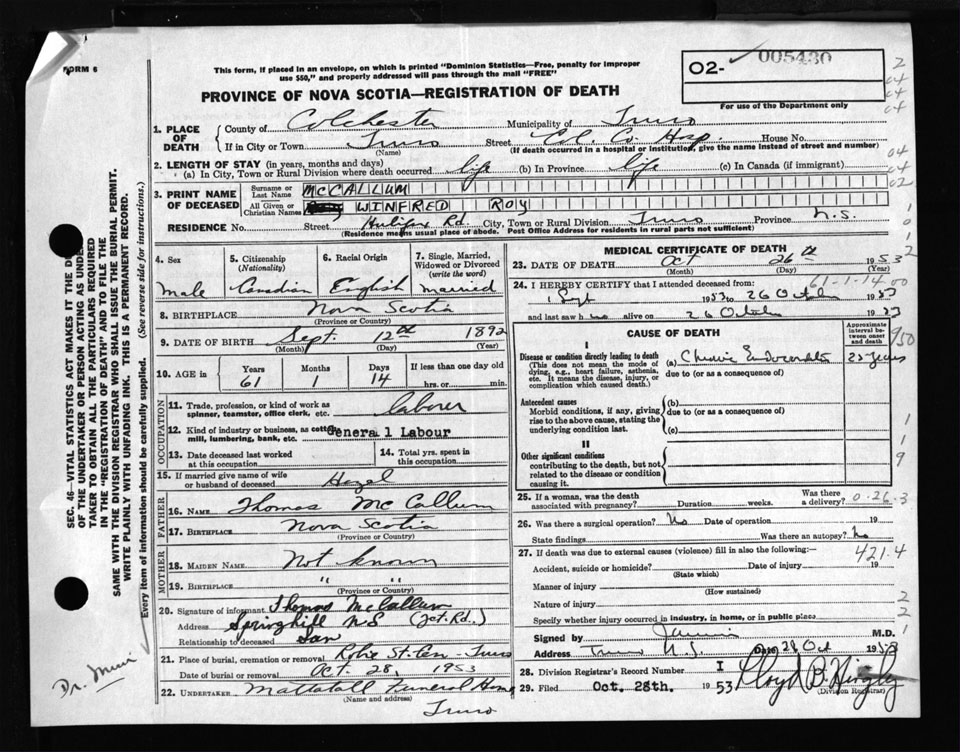 FORM 6
This form, if placed in an envelope, on which is printed "Dominion Statistics—Free, penalty for improper
use $50," and properly addressed will pass through the mail "FREE"
02- 005430
For use of the Department only
PROVINCE OF NOVA SCOTIA—REGISTRATION OF DEATH
1. PLACE OF DEATH { County of Colchester Municipality of Truro
If in City or Town Truro Street Col. Co. Hosp. House No.
(Name) (If death occurred in a hospital or institution, give the name instead of street and number)
2. LENGTH OF STAY (in years, months and days)
(a) In City, Town or Rural Division where death occurred life (b) In Province life (c) In Canada (if immigrant)
3. PRINT NAME OF DECEASED { Surname or Last Name McCALLUM
All Given or Christian Names WINFRED ROY
RESIDENCE No. Street Halifax Rd. City, Town or Rural Division Truro Province N.S.
(Residence means usual place of abode. Post Office Address for residents in rural parts not sufficient)
4. Sex Male
5. Citizenship (Nationality) Canadian
6. Racial Origin English
7. Single, Married, Widowed or Divorced (write the word) Married
8. BIRTHPLACE Nova Scotia
(Province or Country)
9. DATE OF BIRTH Sept. 12th 1892
(Month) (Day) (Year)
10. AGE in Years 61 Months 1 Days 14 If less than one day old hrs. or min.
OCCUPATION
11. Trade, profession, or kind of work as spinner, teamster, office clerk, etc. laborer
12. Kind of industry or business, as cotton mill, lumbering, bank, etc. General Labour
13. Date deceased last worked at this occupation
14. Total yrs. spent in this occupation
15. If married give name of wife or husband of deceased Hazel
FATHER
16. NAME Thomas McCallum
17. BIRTHPLACE Nova Scotia
(Province or Country)
MOTHER
18. MAIDEN NAME Not known
19. BIRTHPLACE " "
(Province or Country)
20. Signature of informant Thomas McCallum
Address Springhill NS (Jct. Rd.,)
Relationship to deceased Son
21. Place of burial, cremation or removal Robie St. Cem Truro
Date of burial or removal Oct. 28, 1953
22. UNDERTAKER Mattatall Funeral Home
(Name and address)
Truro
MEDICAL CERTIFICATE OF DEATH
23. DATE OF DEATH Oct 26th 1953
(Month) (Day) (Year)
61-1-14
24. I HEREBY CERTIFY that I attended deceased from:
1 Sept 1953 to 26 October 1953
and last saw h alive on 26 October 1953
CAUSE OF DEATH
Approximate interval between onset and death
I
Disease or condition directly leading to death
(This does not mean the mode of dying, e.g., heart failure, asthenia, etc. It means the disease, injury, or complication which caused death.)
(a) Chronic Endocarditis 25 years
due to (or as a consequence of)
Antecedent causes
Morbid conditions, if any, giving rise to the above cause, stating the underlying condition last.
(b)
due to (or as a consequence of)
(c)
II
Other significant conditions
contributing to the death, but not related to the disease or condition causing it.
25. If a woman, was the death associated with pregnancy? Duration weeks. Was there a delivery?
0-26-3
26. Was there a surgical operation? No Date of operation 19
State findings Was there an autopsy? No
27. If death was due to external causes (violence) fill in also the following:—
421.4
Accident, suicide or homicide? Date of injury 19
(State which)
Manner of injury
(How sustained)
Nature of injury
Specify whether injury occurred in industry, in home, or in public place
Signed by M.D.
Address Truro N.S. Date 28 Oct 1953
28. Division Registrar's Record Number I
29. Filed Oct. 28th. 1953 Lloyd B.
(Division Registrar)
SEC. 46—VITAL STATISTICS ACT MAKES IT THE
OF THE UNDERTAKER OR PERSON ACTING AS UNDER
TAKER TO OBTAIN ALL THE PARTICULARS REQUIRED
IN THE "REGISTRATION OF DEATH" AND TO FILE THE
SAME WITH THE DIVISION REGISTRAR WHO SHALL ISSUE THE BURIAL PERMIT.
WRITE PLAINLY WITH UNFADING INK. THIS IS A PERMANENT RECORD.
Every item of information should be carefully supplied. (See reverse side for instructions.)
Dr. Muir